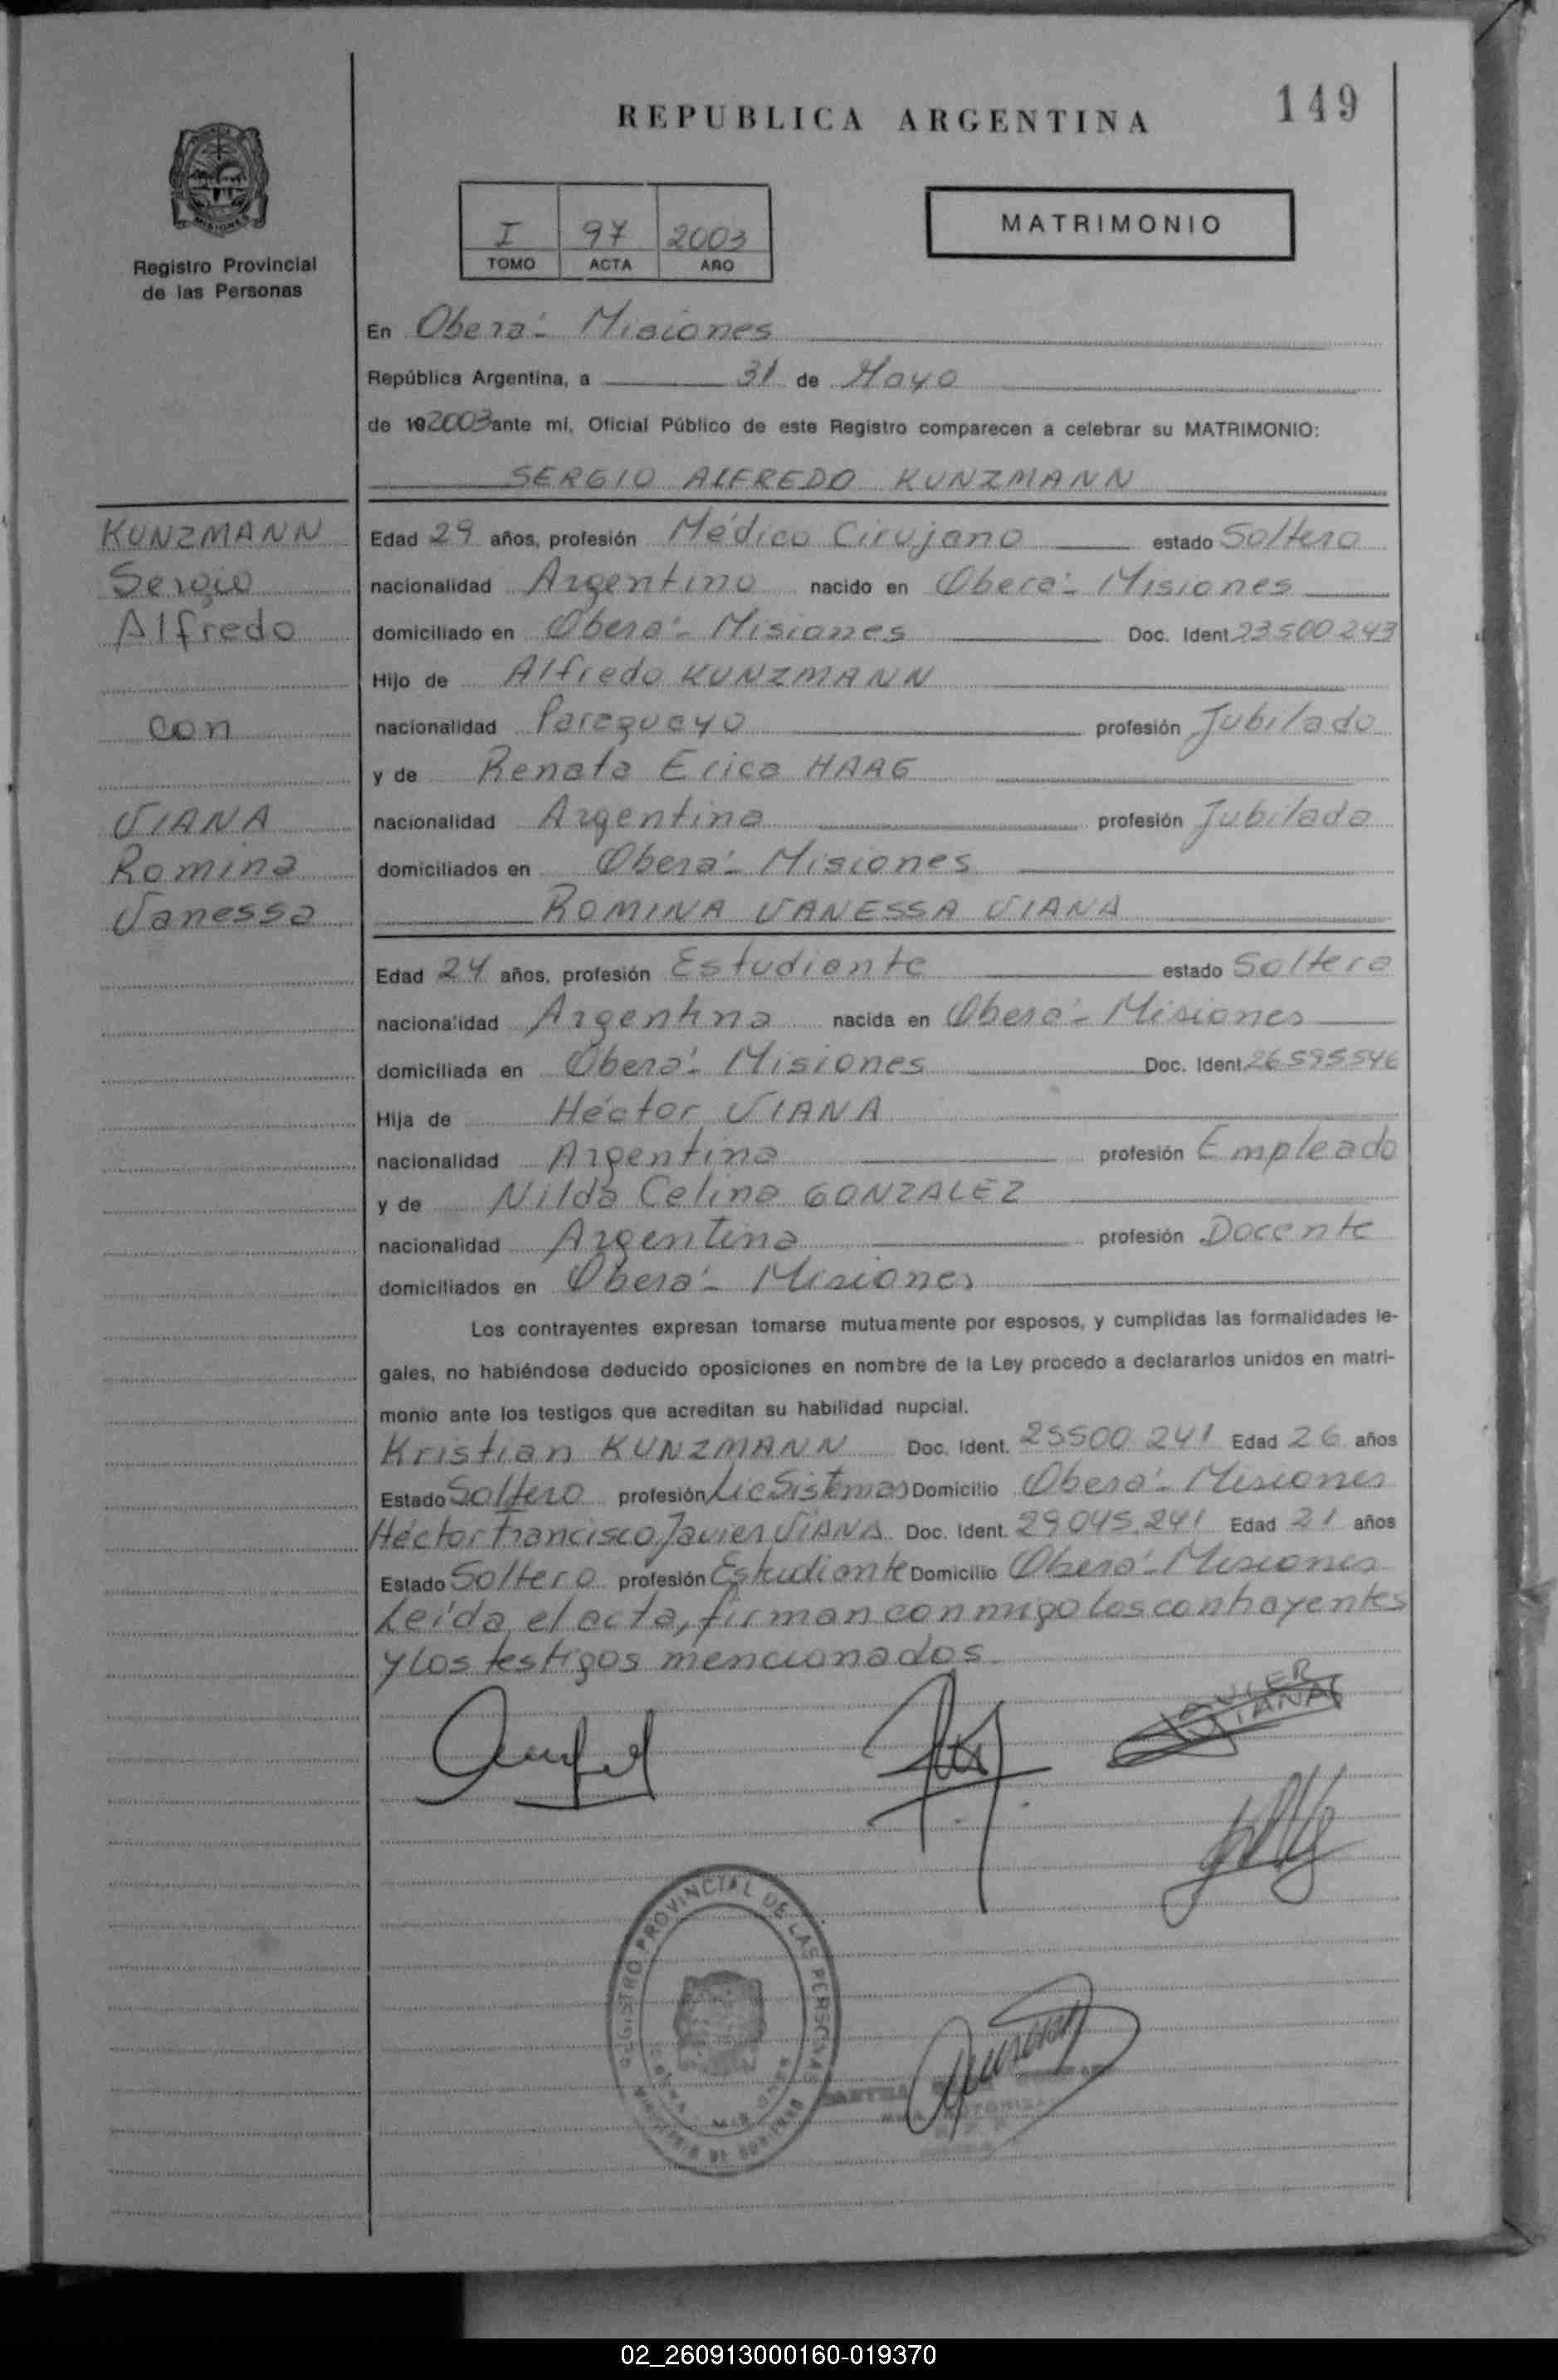 149
REPUBLICA ARGENTINA
I 97 2003
TOMO ACTA AÑO
MATRIMONIO
Registro Provincial
de las Personas
En Oberá - Misiones
República Argentina, a 31 de Mayo
de 192003 ante mí, Oficial Público de este Registro comparecen a celebrar su MATRIMONIO:
SERGIO ALFREDO KUNZMANN
KUNZMANN
Sergio
Alfredo
con
VIANA
Romina
Vanessa
Edad 29 años, profesión Médico Cirujano estado Soltero
nacionalidad Argentino nacido en Oberá - Misiones
domiciliado en Oberá - Misiones Doc. Ident. 23500243
Hijo de Alfredo KUNZMANN
nacionalidad Paraguayo profesión Jubilado
y de Renata Erica HAAG
nacionalidad Argentina profesión Jubilada
domiciliados en Oberá - Misiones
ROMINA VANESSA VIANA
Edad 24 años, profesión Estudiante estado Soltera
nacionalidad Argentina nacida en Oberá - Misiones
domiciliada en Oberá - Misiones Doc. Ident. 26595546
Hija de Héctor VIANA
nacionalidad Argentina profesión Empleado
y de Nilda Celina GONZALEZ
nacionalidad Argentina profesión Docente
domiciliados en Oberá - Misiones
Los contrayentes expresan tomarse mutuamente por esposos, y cumplidas las formalidades le-
gales, no habiéndose deducido oposiciones en nombre de la Ley procedo a declararlos unidos en matri-
monio ante los testigos que acreditan su habilidad nupcial.
Kristian KUNZMANN Doc. Ident. 25500 241 Edad 26 años
Estado Soltero profesión Lic Sistemas Domicilio Oberá - Misiones
Héctor Francisco Javier VIANA Doc. Ident. 29045.241 Edad 21 años
Estado Soltero profesión Estudiante Domicilio Oberá - Misiones
Leída el acta, firman conmigo los contrayentes
y los testigos mencionados.
VIANA
REGISTRO PROVINCIAL DE LAS PERSONAS
MINISTERIO DE GOBIERNO
02_260913000160-019370